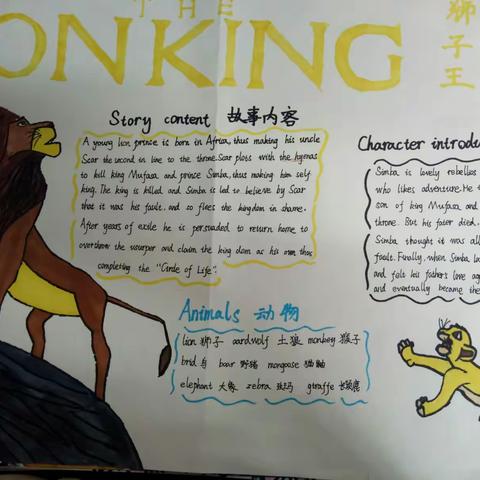 THE
ON KING
狮子王
Story content 故事内容
A young lion prince is born in Africa, thus making his uncle
Scar the second in line to the throne. Scar plots with the hyenas
to kill king Mufasa and prince Simba, thus making him self
king. The king is killed and Simba is led to believe by Scar
that it was his fault, and so flees the kingdom in shame.
After years of exile he is persuaded to return home to
overthrow the usurper and claim the king dom as his own thus
completing the "Circle of Life".
Character introdu
Simba is lovely rebellios
who likes adventure. He
son of king Mufasa and
throne. But his father died,
Simba thought it was all
fault. Finally, when Simba
and felt his father's love
and eventually became the
Animals 动物
lion 狮子 aardwolf 土狼 monkey 猴子
brid 鸟 boar 野猪 mongoose 猫鼬
elephant 大象 zebra 斑马 giraffe 长颈鹿